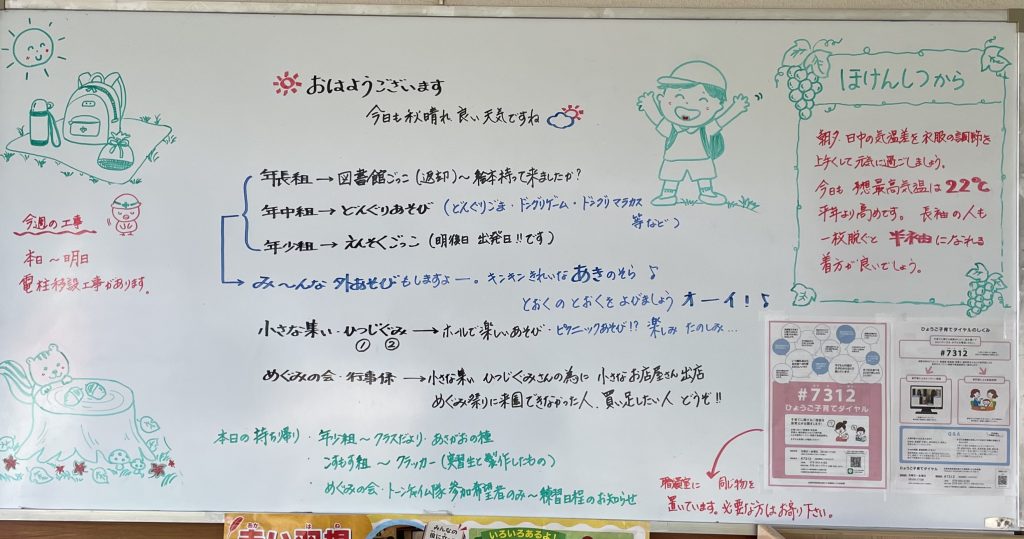 おはようございます
今日も秋晴れ 良い天気ですね
年長組→図書館ごっこ(返却)～絵本持って来ましたか?
年中組→どんぐりあそび(どんぐりごま・ドングリゲーム・ドングリマラカス
等など)
年少組→えんそくごっこ(明後日 出発日!!です)
み～んな 外あそびもしますよー。キンキンきれいな あきのそら♪
とおくのとおくをよびましょう オーイ!♪
小さな集い・ひつじぐみ→ホールで楽しいあそび・ピクニックあそび!? 楽しみ たのしみ…
① ②
めぐみの会・行事係→小さな集い ひつじぐみさんの為に 小さなお店屋さん出店
めぐみ祭りに来園できなかった人、買い足したい人 どうぞ!!
本日の持ち帰り・年少組～クラスだより・あさがおの種
こすもす組～クラッカー(実習生と製作したもの)
めぐみの会・トーンチャイム隊 参加希望者のみ～練習日程のお知らせ
今週の工事
本日～明日
電柱移設工事があります。
ほけんしつから
朝夕・日中の気温差を衣服の調節を
上手くして元気に過ごしましょう。
今日も予想最高気温は22℃
平年より高めです。長袖の人も
一枚脱ぐと半袖になれる
着方が良いでしょう。
#7312
ひょうご子育てダイヤル
ひょうご子育てダイヤルのしくみ
#7312
Q&A
ひょうご子育てダイヤル
職員室に 同じ物を
置いています。必要な方はお寄り下さい。
赤い羽根
あか はね
みんなの
いろいろあるよ!